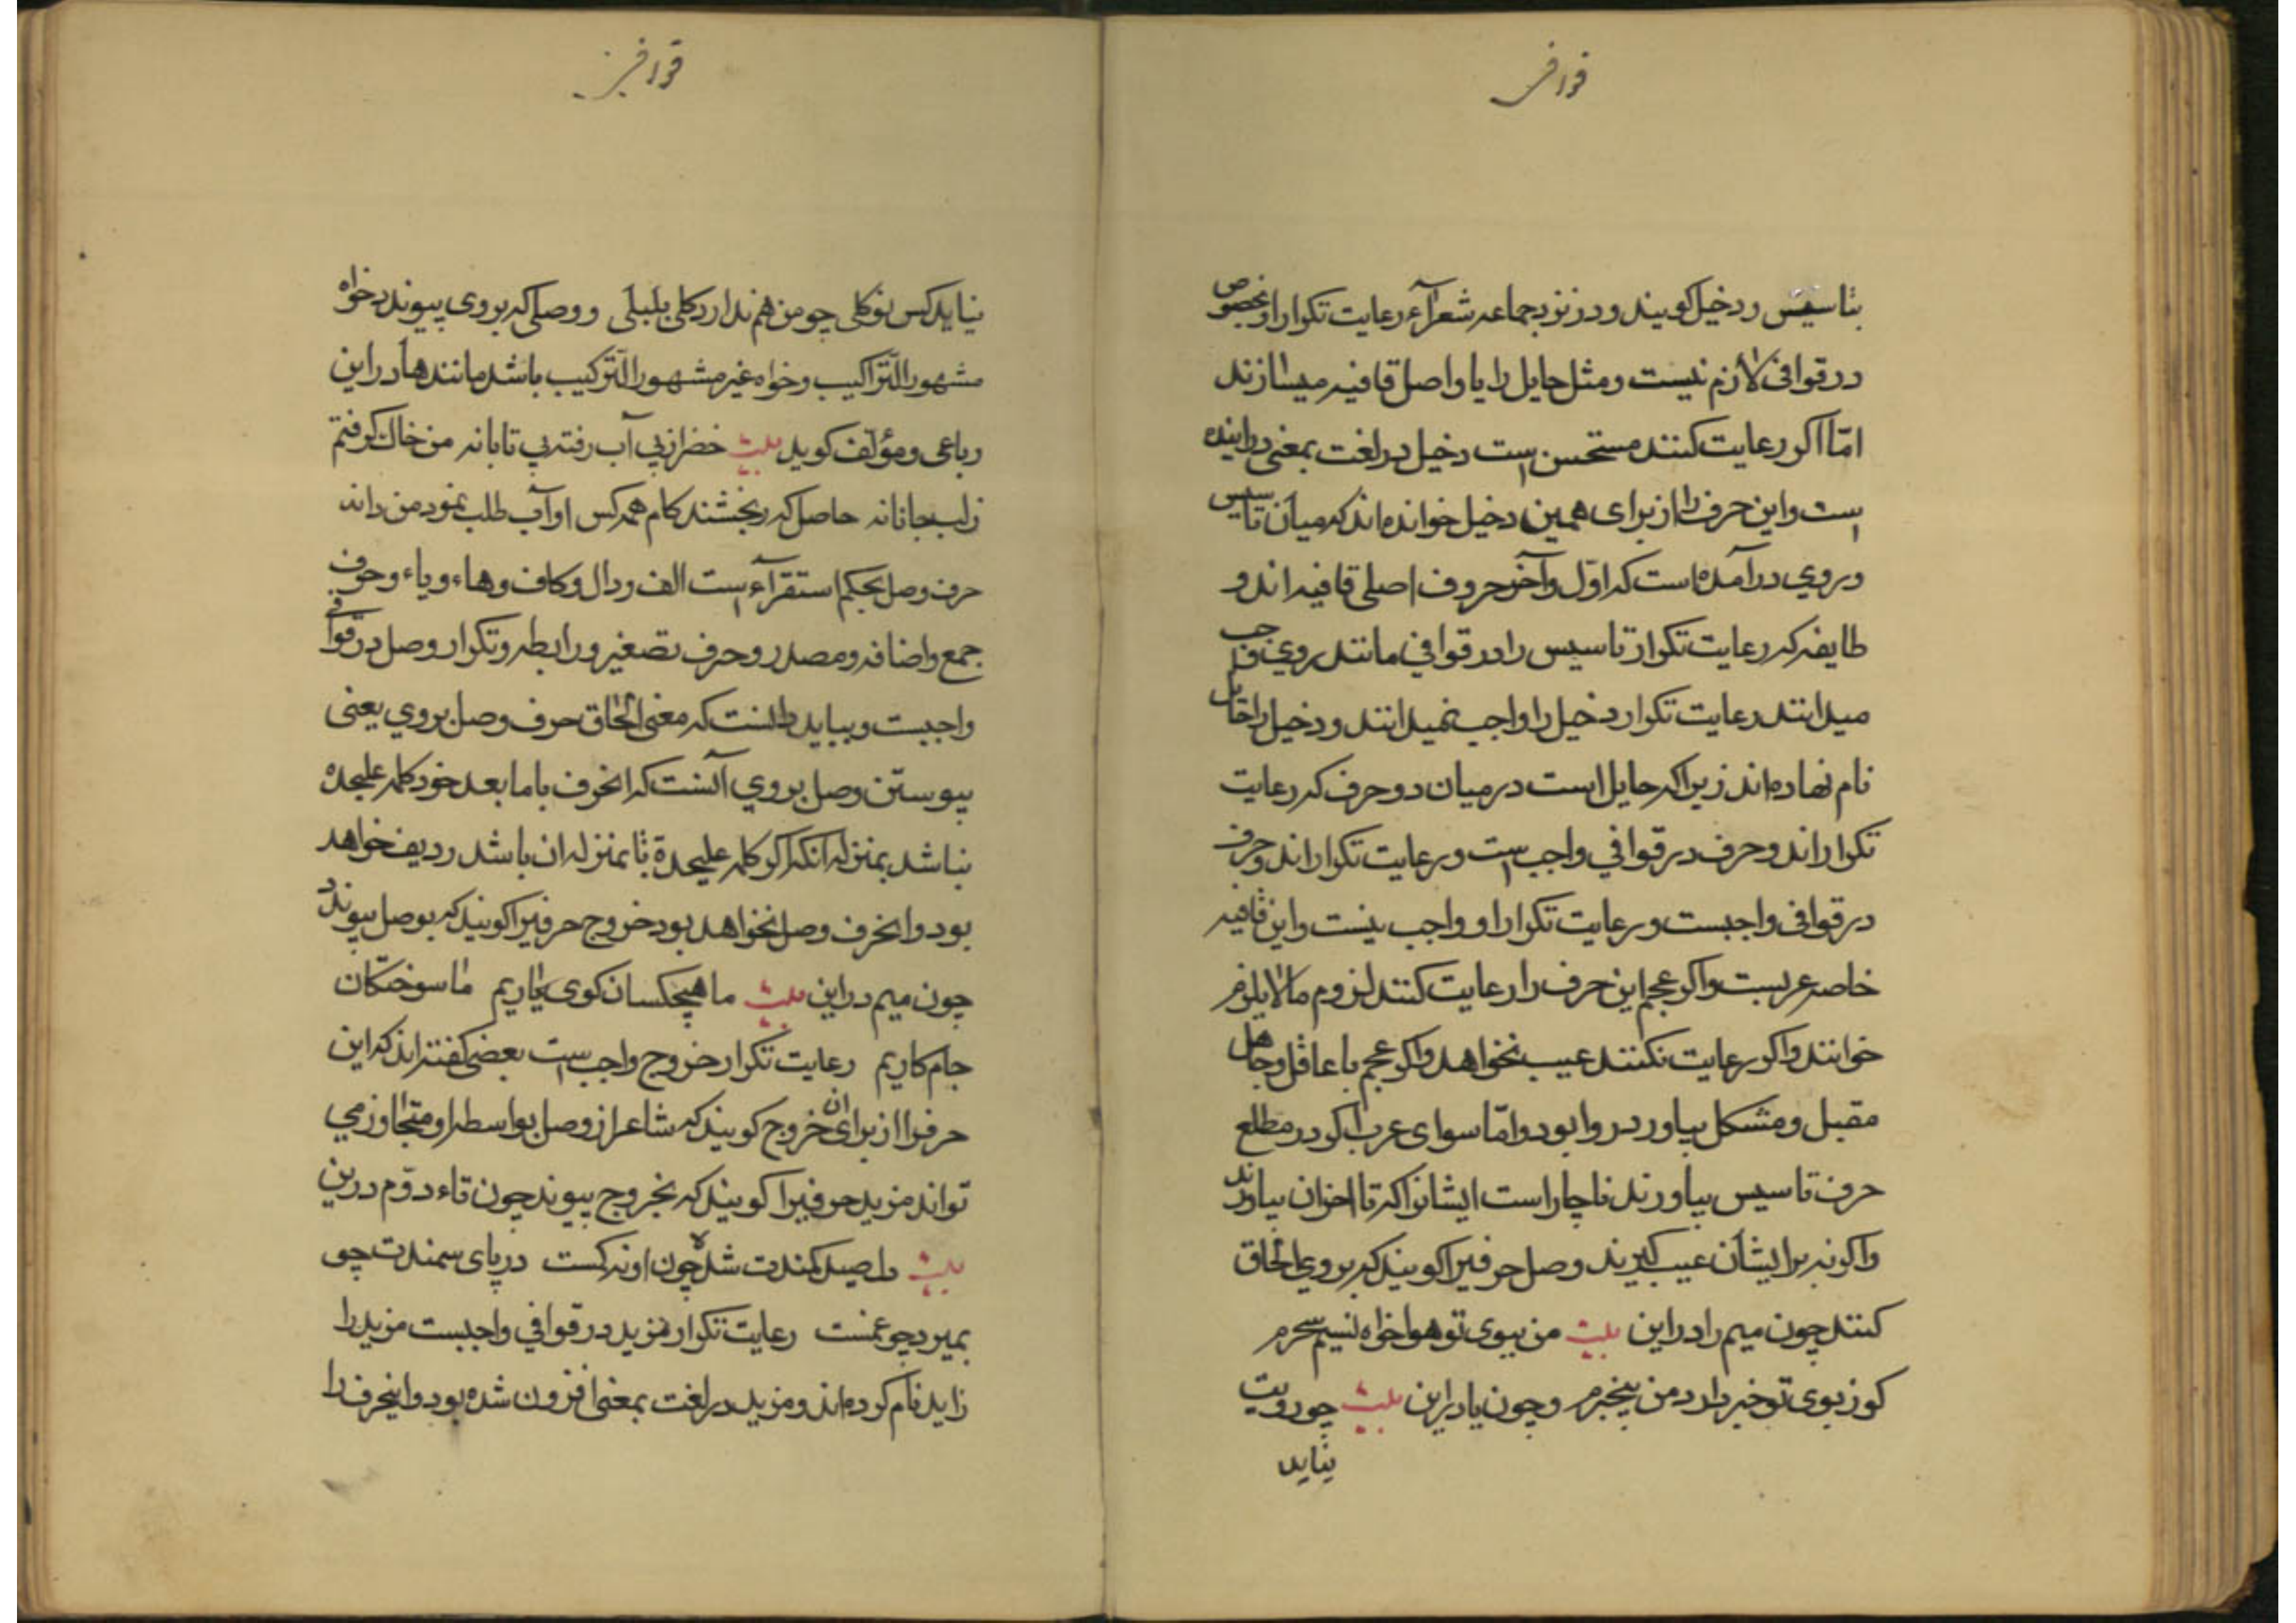 قوافی
بتاسیس و دخیل کویند و در نزد جماعه شعرآء رعایت تکرار او بخصوص
در قوافی لازم نیست و مثل حایل را با واصل قافیه میسازند
امّا اکر رعایت کنند مستحسن است دخیل در لغت بمعنی دراینده
است و این حرف را از برای همین دخیل خوانده‌اند که میان تاسیس
و روی در آمده است که اوّل و آخر حروف اصلی قافیه‌اند و
طایفه که رعایت تکرار تاسیس را در قوافی مانند روی واجب
میدانند رعایت تکرار دخیل را واجب نمیدانند و دخیل را حایل
نام نهاده‌اند زیرا که حایل است در میان دو حرف که رعایت
تکرار اند و حرف در قوافی واجب است و رعایت تکرار اند و حرف
در قوافی واجبست و رعایت تکرار او واجب نیست و این قافیه
خاصه عربست و اکر عجم این حرف را رعایت کنند لزوم مالایلزم
خوانند و اکر رعایت نکنند عیب نخواهد و اکر عجم با عاقل و جاهل
مقبل و مشکل بیاورد روا بود و امّا سوای عرب اکر در مطلع
حرف تاسیس بیاورند ناچار است ایشانرا که تا اخر ان بیاورند
و اکر نه بر ایشان عیب کیرند وصل حرفیرا کویند که بروی الحاق
کنند چون میم را در این بیت من ببوی تو هوا خواه نسیم سحرم
کو ز بوی تو خبر دارد من بیخبرم و چون یا در این بیت چو رویت
نیاید
قوافی
نیاید کس نو کلی چو من هم ندارد کلی بلبلی و وصلی که بروی پیوندد خواه
مشهور التّراکیب و خواه غیر مشهور التّرکیب باشد مانند ها در این
رباعی و مؤلّف کوید بیت خضر از پی آب رفته بی تابانه من خاک کرفتم
ز لب جانانه حاصل که ببخشند کام همه کس او آب طلب نمود من دانه
حرف وصل بحکم استقرآء است الف و دال و کاف و هاء و یاء و حرف
جمع و اضافه و مصدر و حرف تصغیر و رابطه و تکرار وصل در قوافی
واجبست و بباید دانست که معنی الحاق حرف وصل بروی یعنی
پیوستن وصل بروی آنست که انحرف با ما بعد خود کلمه علیحده
نباشد بمنزله انکه اکر کلمه علیحدة یا بمنزله ان باشد ردیف خواهد
بود و انحرف وصل نخواهد بود خروج حرفیرا کویند که بوصل پیوندد
چون میم در این بیت ما هیچکسان کوی یاریم ما سوختکان
خام کاریم رعایت تکرار خروج واجب است بعضی کفته‌اند که این
حرفرا از برای ان خروج کویند که شاعر از وصل بواسطه او متجاوز می
تواند مزید حرفیرا کویند که بخروج پیوندد چون تاء دوّم درین
بیت دل صید کمندت شده چون او نه کست در پای سمندت چو
بمیرد چو غمست رعایت تکرار مزید در قوافی واجبست مزید را
زاید نام کرده‌اند و مزید در لغت بمعنی افزون شده بود و اینحرف را